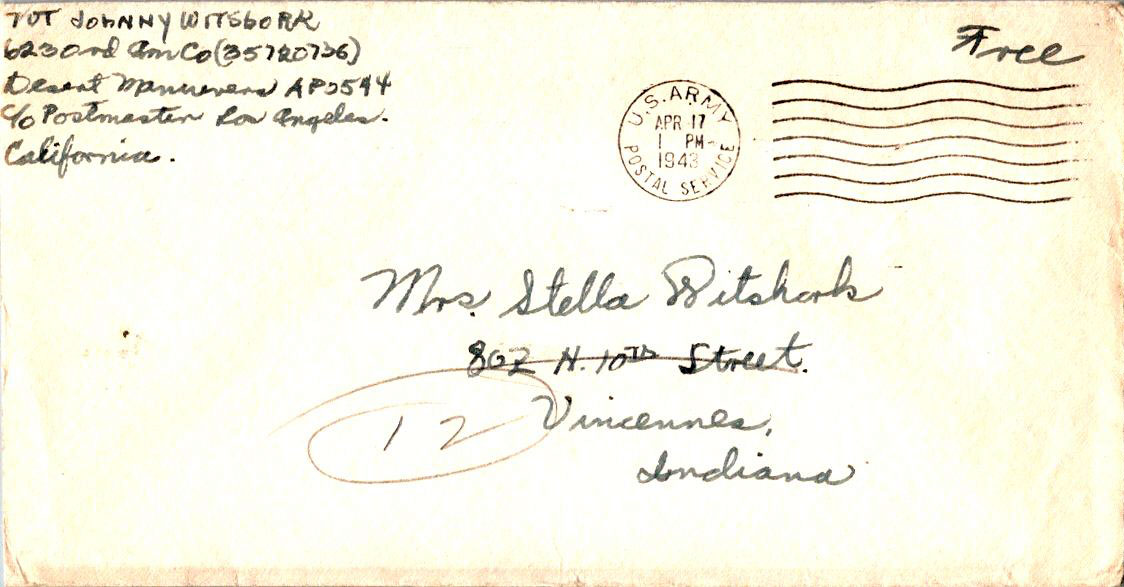 PVT JOHNNY WITSBORK
623 Ord Am Co (35720736)
Desert Manuevers APO 544
c/o Postmaster Los Angeles.
California.
Free
U.S. ARMY
APR 17
1 PM
1943
POSTAL SERVICE
Mrs. Stella Witsbork
802 N. 10TH Street.
12
Vincennes,
Indiana